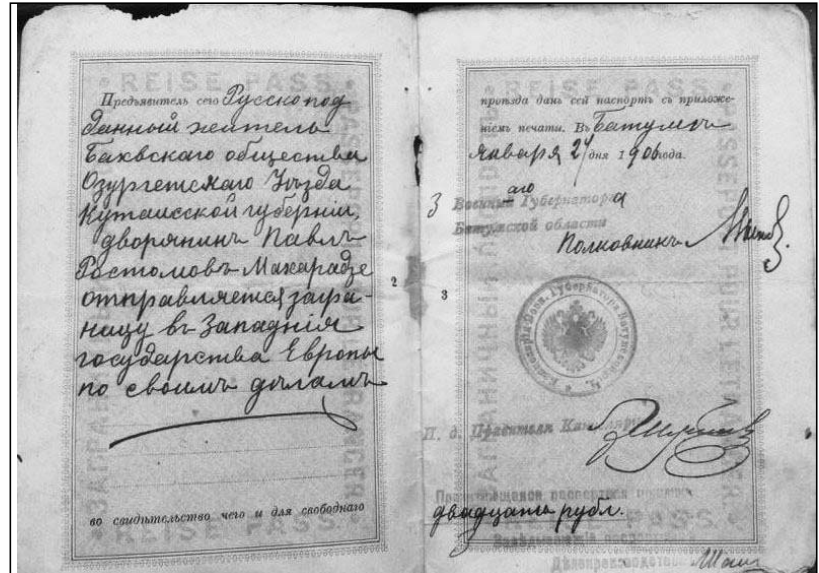 REISE PASS
Предъявитель сего Русскопод
данный житель
Бахвскаго общества
Озургетскаго Уѣзда
Кутаисской губерніи,
дворянинъ Павлъ
Ростомовъ Махарадзе
отправляется загра-
ницу въ Западнія
государства Европы
по своимъ дѣламъ
во свидѣтельство чего и для свободнаго
REISE PASS
2
REISE PASS
проѣзда данъ сей паспортъ съ приложе-
ніемъ печати. Въ Батумъ
Января 24 дня 1906 года.
З Военный аго Губернатора
Батумской области
Полковникъ
3
П. д. Правителя Канцеляріи
двадцать рубл.
REISE PASS
Дѣлопроизводитель